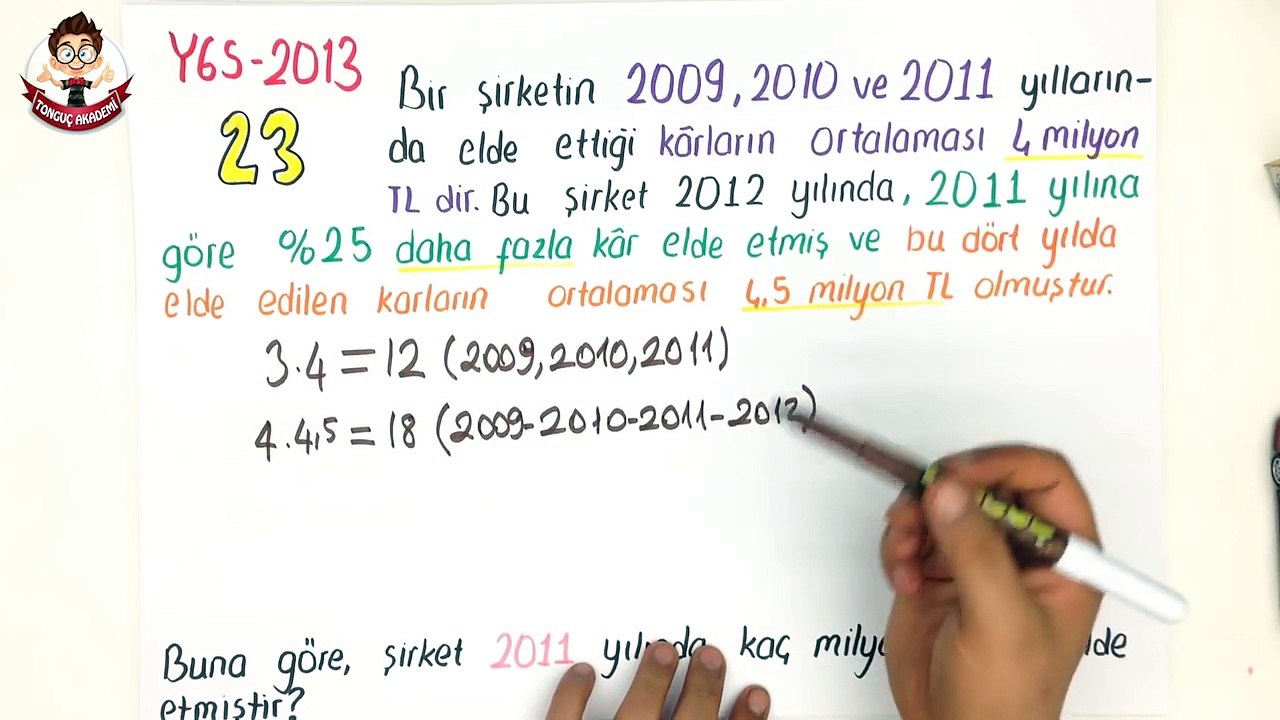 TONGUÇ AKADEMİ
YGS-2013
23
Bir şirketin 2009, 2010 ve 2011 yılların-
da elde ettiği kârların ortalaması 4 milyon
TL dir. Bu şirket 2012 yılında, 2011 yılına
göre %25 daha fazla kâr elde etmiş ve bu dört yılda
elde edilen karların ortalaması 4,5 milyon TL olmuştur.
3.4 = 12 (2009, 2010, 2011)
4.4,5 = 18 (2009-2010-2011-2012)
Buna göre, şirket 2011 kaç
etmiştir?